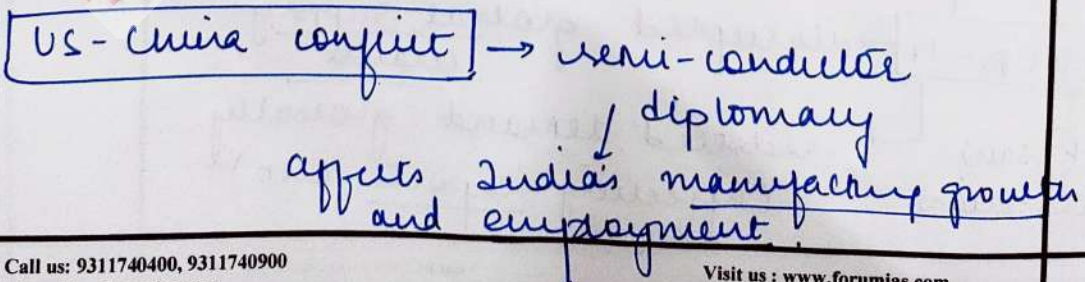 US - China conflict → semi-conductor
↓ diplomacy
affects India's manufacturing growth
and employment.
Call us: 9311740400, 9311740900
Visit us : www.forumias.com